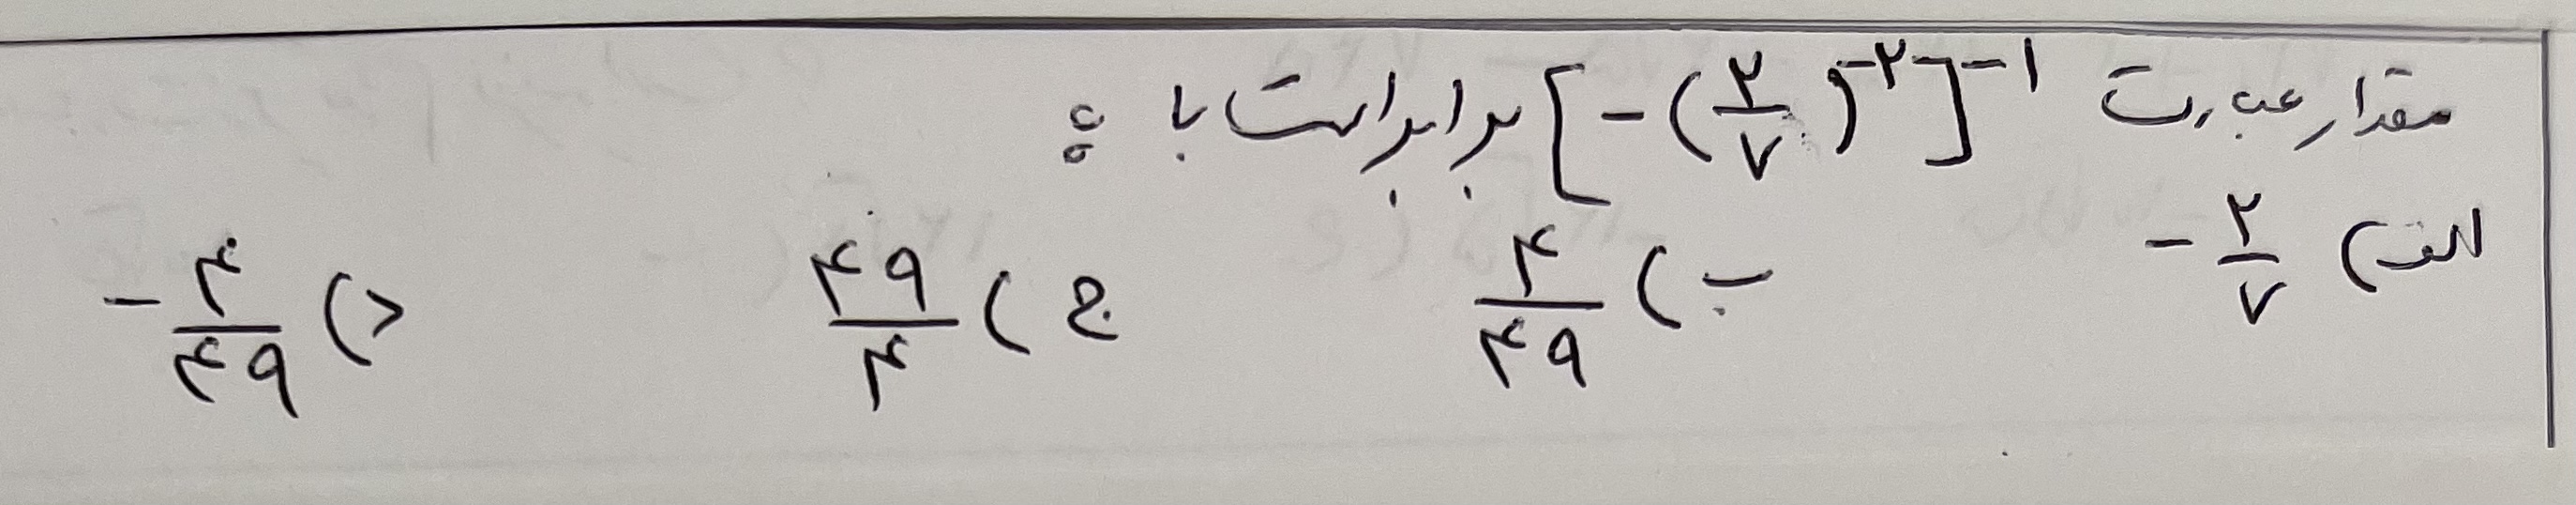 مقدار عبارت [-(۲/۷)^-۲]^-۱ برابر است با :
الف) -۲/۷ ب) ۴/۴۹ ج) ۴۹/۴ د) -۴/۴۹